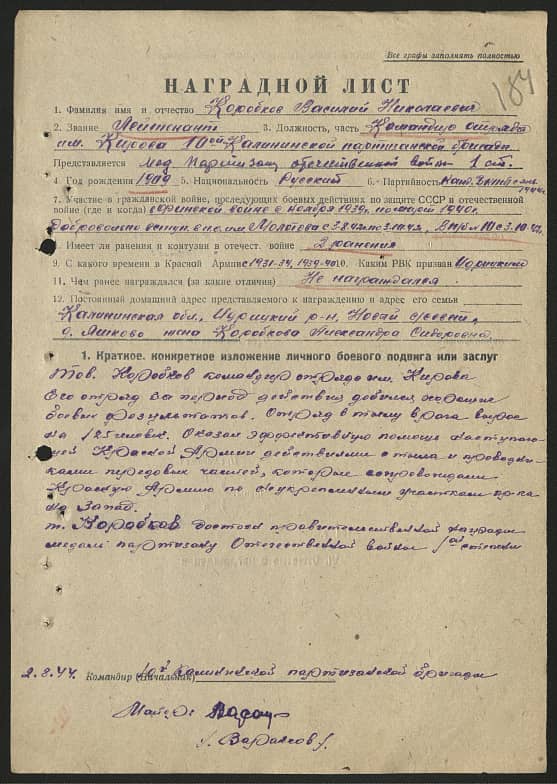 Все графы заполнять полностью
184
НАГРАДНОЙ ЛИСТ
1. Фамилия имя и отчество Коробков Василий Николаевич
2. Звание Лейтенант 3. Должность, часть Командир отряда
им. Кирова 10ой Калининской партизанской бригады
Представляется мед. Партизану отечественной войны 1 ст.
4 Год рождения 1909 5. Национальность Русский 6. Партийность канд.
7. Участие в гражданской войне, последующих боевых действиях по защите СССР и отечественной
войне (где и когда) с финской войне с ноября 1939, по март 1940г.
Добровольно
8. Имеет ли ранения и контузии в отечест. войне 2 ранения
9. С какого времени в Красной Армии с 1931-34, 1939-40 10. Каким РВК призван Идрицким
11. Чем ранее награждался (за какие отличия) Не награждался.
12. Постоянный домашний адрес представляемого к награждению и адрес его семьи
Калининская обл., Идрицкий р-н,
д. жена Коробкова Александра Сидоровна
1. Краткое, конкретное изложение личного боевого подвига или заслуг
Тов. Коробков командир отряда им. Кирова.
Его отряд за период действия добился хороших
боевых результатов. Отряд в тылу врага вырос
на 125 человек. Оказал эффективную помощь наступаю-
щей Красной Армии действиями с тыла и проводни-
ками передовых частей, которые сопровождали
Красную Армию по неукрепленным участкам пр-ка
на Запад.
т. Коробков достоин правительственной награды
медали партизану Отечественной войны 1ой степени
2.8.44. Командир (Начальник) 10ой Калининской партизанской бригады
Майор
/Вараксов/.